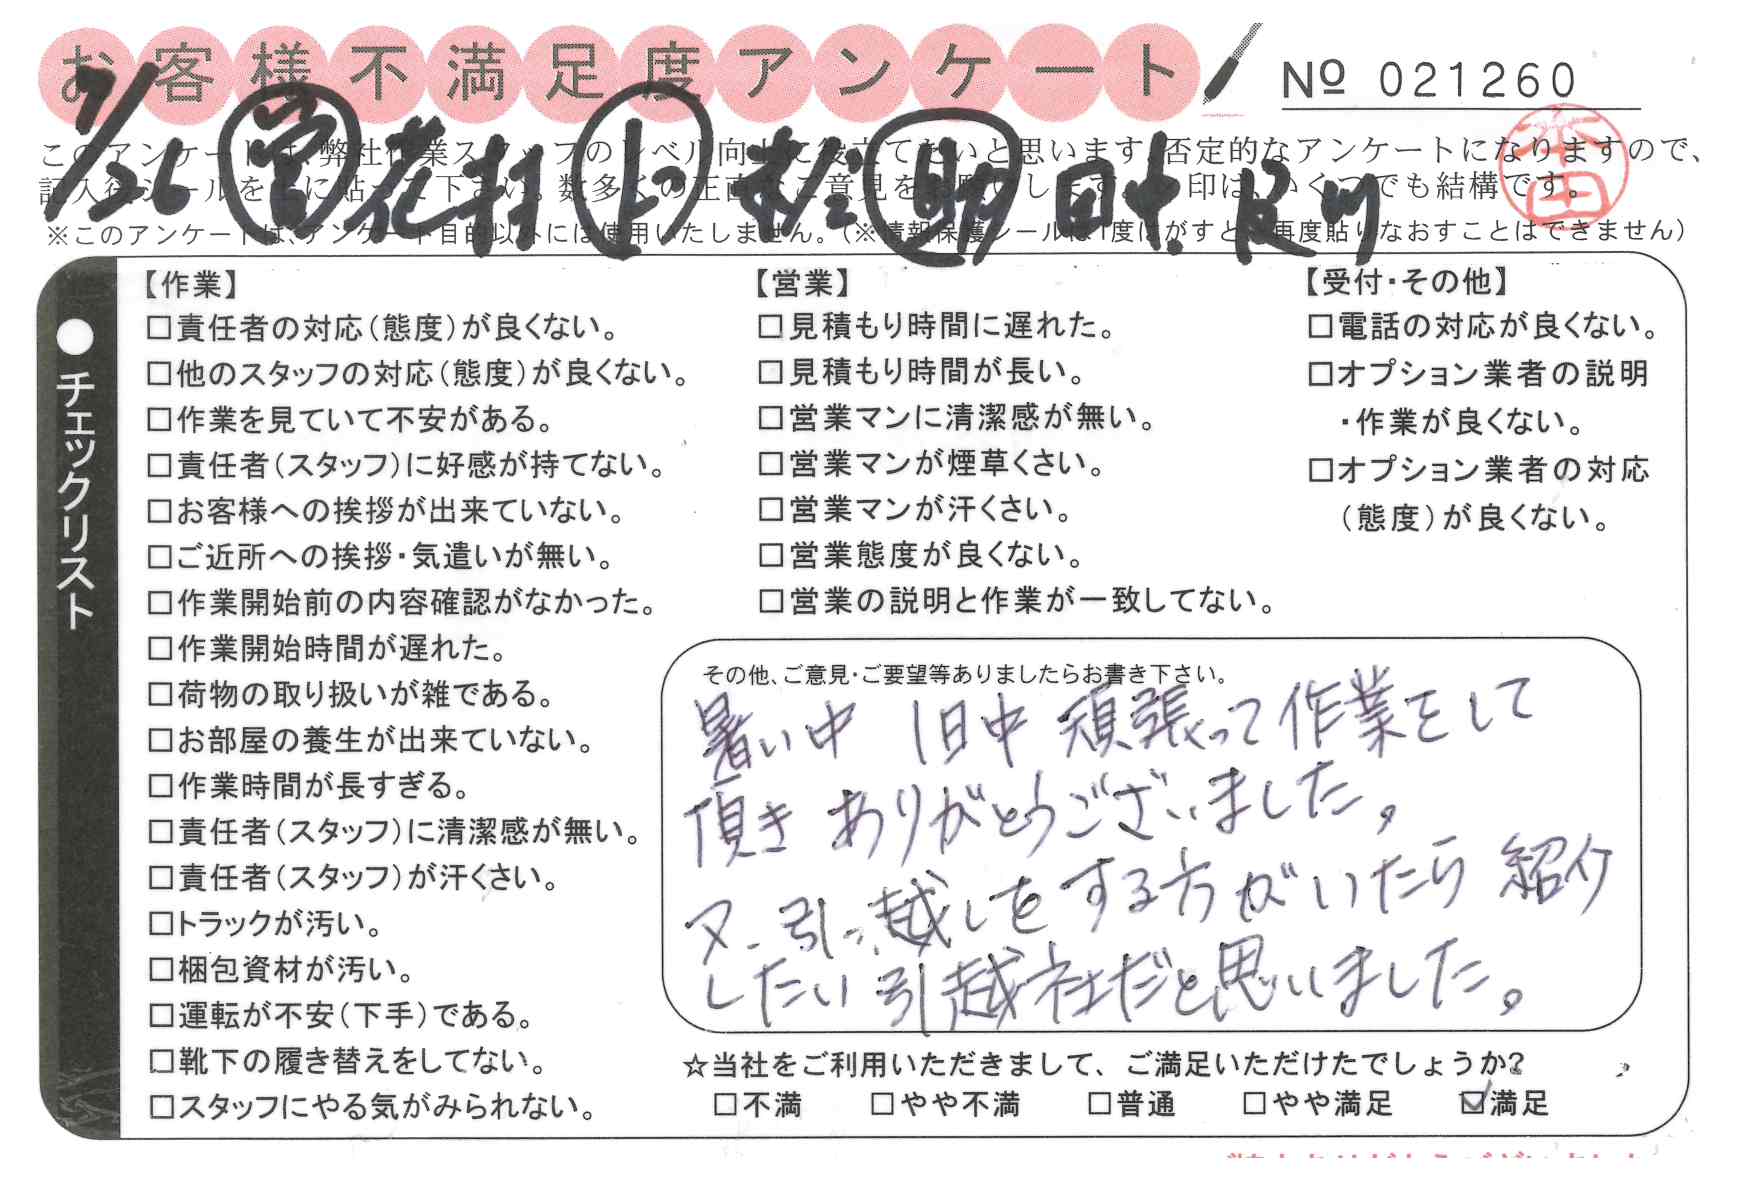 お客様不満足度アンケート
№ 021260
7/26 営 花村 上 松上 助 田中 良川
本田
このアンケートは、弊社作業スタッフのレベル向上に役立てたいと思います。否定的なアンケートになりますので、
記入後シールを上に貼って下さい。数多くの正直なご意見をお願いします。✓印は、いくつでも結構です。
※このアンケートは、アンケート目的以外には使用いたしません。(※情報保護シールは1度はがすと、再度貼りなおすことはできません)
●チェックリスト
【作業】
□責任者の対応(態度)が良くない。
□他のスタッフの対応(態度)が良くない。
□作業を見ていて不安がある。
□責任者(スタッフ)に好感が持てない。
□お客様への挨拶が出来ていない。
□ご近所への挨拶・気遣いが無い。
□作業開始前の内容確認がなかった。
□作業開始時間が遅れた。
□荷物の取り扱いが雑である。
□お部屋の養生が出来ていない。
□作業時間が長すぎる。
□責任者(スタッフ)に清潔感が無い。
□責任者(スタッフ)が汗くさい。
□トラックが汚い。
□梱包資材が汚い。
□運転が不安(下手)である。
□靴下の履き替えをしてない。
□スタッフにやる気がみられない。
【営業】
□見積もり時間に遅れた。
□見積もり時間が長い。
□営業マンに清潔感が無い。
□営業マンが煙草くさい。
□営業マンが汗くさい。
□営業態度が良くない。
□営業の説明と作業が一致してない。
【受付・その他】
□電話の対応が良くない。
□オプション業者の説明
・作業が良くない。
□オプション業者の対応
(態度)が良くない。
その他、ご意見・ご要望等ありましたらお書き下さい。
暑い中 1日中 頑張って作業をして
頂き ありがとうございました。
又、引っ越しをする方がいたら 紹介
したい引越社だと思いました。
☆当社をご利用いただきまして、ご満足いただけたでしょうか?
□不満 □やや不満 □普通 □やや満足 ☑満足